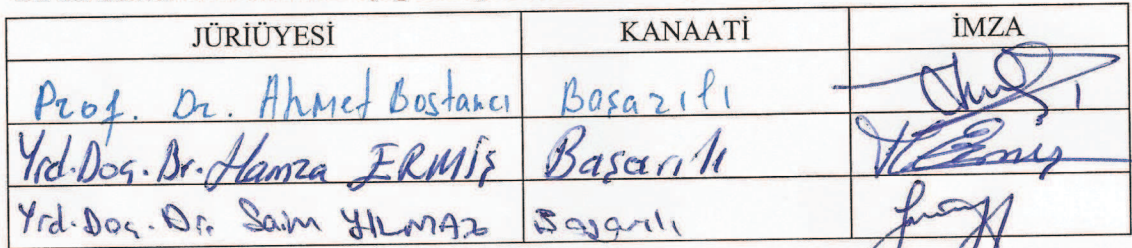 JÜRİÜYESİ KANAATİ İMZA
Prof. Dr. Ahmet Bostancı Başarılı
Yrd. Doç. Dr. Hamza ERMİŞ Başarılı
Yrd. Doç. Dr. Saim YILMAZ Başarılı